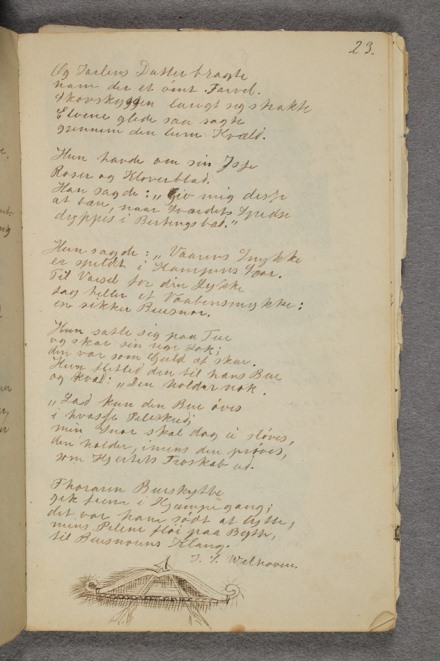 23.
Og Jarlens Datter bragte
ham der et ømt Farvel.
Skovskyggen langt sig strakte
Elvene glede saa sagte
gjennem den lune Kvæld.
Hun havde om sin Isse
Roser og Kløverblad.
Han sagde: „Giv mig disse
at bære, naar Sværdets Spidse
dyppes i Bersingsbad."
Hun sagde: „Vaarens Smykke
er spildt i Kampens Saar.
Til Varsel for din Lykke
tag heller et Vaabensmykke:
en sikker Buesnor.
Hun satte sig paa Tue
og skar sin rige Lok;
den var som Guld at skue.
Hun fletted den til hans Bue
og kvad: „Den holder nok.
„Lad kun den Bue øves
i hvasse Pileskud,
min Snor skal dog ei sløves,
den holder, imens den prøves,
som Hjertets Troskab ud.
Thoraren Bueskytte
gik frem i Kjæmpegang;
det var ham sødt at lytte,
mens Pilene fløi paa Bytte,
til Buesnorens Klang.
J. S. Welhaven.